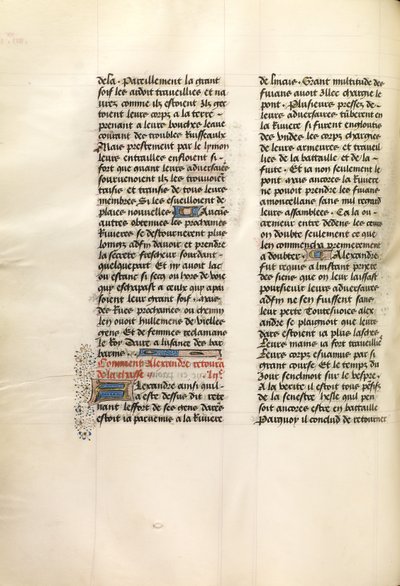 dela. Pareillement la grant
soif les ardoit traveillies et na
vrez comme ilz estoient Ilz get
toient leurs corps a la terre
prenant a leurs bouches leaue
courant des troubles Ruisseaulx
Mais prestement par le lymon
leurs entrailles enfloient si
fort que quant leurs adversaires
sourvenoient ilz les trouvoient
tarse et transse de tous leurs
membres Si les esveilloient de
plaies nouvelles Aucuns
autres obtenues les prochaines
Rivieres se destournerent plus
loingz adfin davoir et prendre
la secrete frescheur sourdant
quelquepart Et ny avoit lac
ou estanc si secq ou hors de voie
qui eschapast a ceulx quy apai
soient leur grant soif. mais
des Rues prochaines ou chemin
len ouoit hullemens de vielles
gens Et de femmes reclamans
le Roy Daire a lusance des bar
barins
Comment Alexandre retourna
de la chasse
Alexandre ainsi quil
a este dessus dit rete
nant leffort de ses gens darés
estoit ia parvenus a la Riviere
de Grant multitude des
fuians avoit illec chargie le
pont. Plusieurs pressez de
leurs adversaires tuberent en
la Riviere si furent engloutis
des undes les corps chargies
de leurs armeures et traveil
lies de la bataille et de la
fuite. Et ia non seulement le
pont mais ancores la Riviere
ne pouoit prendre les fuians
amoncellans sans nul regard
leurs assamblees. Ea la ou
cremeur entre dedens les cuers
on doubte seulement ce que
len commencha premierement
a doubter Alexandre
fut requis a linstant priere
des siens que on leur laissast
poursievir leurs adversaires
adfin ne sen fuissent sans
leur perte Toutesvoies alex
andre se plaignoit que leurs
dars estoient ia plus lasches
Leurs mains ia fort travillies
Leurs corps esvanuis par si
grant cours Et le temps du
Jour senclinoit sur le vespre.
A la verite il estoit tous pensifz
de la senestre hesle qui pen
soit ancores estre en bataille
Parquoy il conclud de retourner